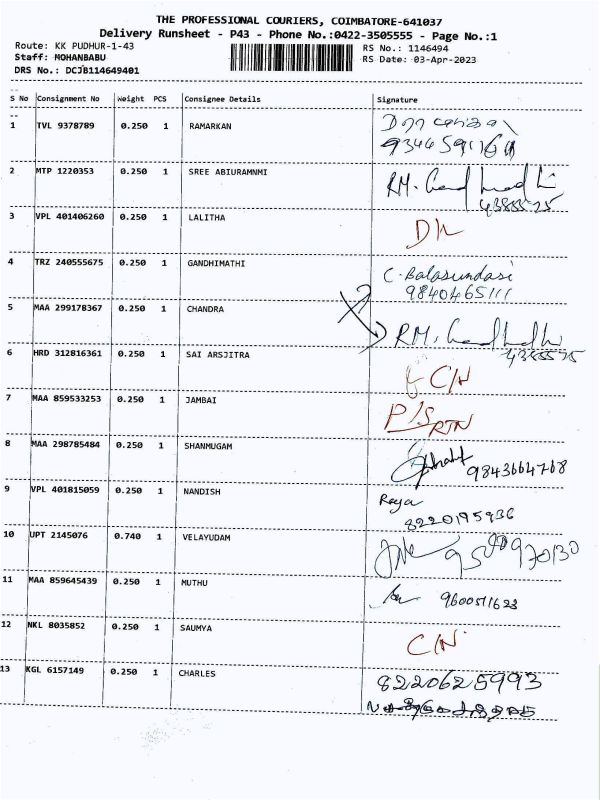 THE PROFESSIONAL COURIERS, COIMBATORE-641037
Delivery Runsheet - P43 - Phone No.:0422-3505555 - Page No.:1
Route: KK PUDHUR-1-43 RS No.: 1146494
Staff: MOHANBABU RS Date: 03-Apr-2023
DRS No.: DCJB114649401
S No Consignment No Weight PCS Consignee Details Signature
1 TVL 9378789 0.250 1 RAMARKAN
2 MTP 1220353 0.250 1 SREE ABIURAMNMI RM.
4385575
3 VPL 401406260 0.250 1 LALITHA
4 TRZ 240555675 0.250 1 GANDHIMATHI C. Balasundasi
9840465111
5 MAA 299178367 0.250 1 CHANDRA RM.
4385575
6 HRD 312816361 0.250 1 SAI ARSJITRA C/N
7 MAA 859533253 0.250 1 JAMBAI P/S RTN
8 MAA 298785484 0.250 1 SHANMUGAM 9843664768
9 VPL 401815059 0.250 1 NANDISH Raya
8220195936
10 UPT 2145076 0.740 1 VELAYUDAM
11 MAA 859645439 0.250 1 MUTHU 9600511623
12 NKL 8035852 0.250 1 SAUMYA C/N
13 KGL 6157149 0.250 1 CHARLES 8220625993